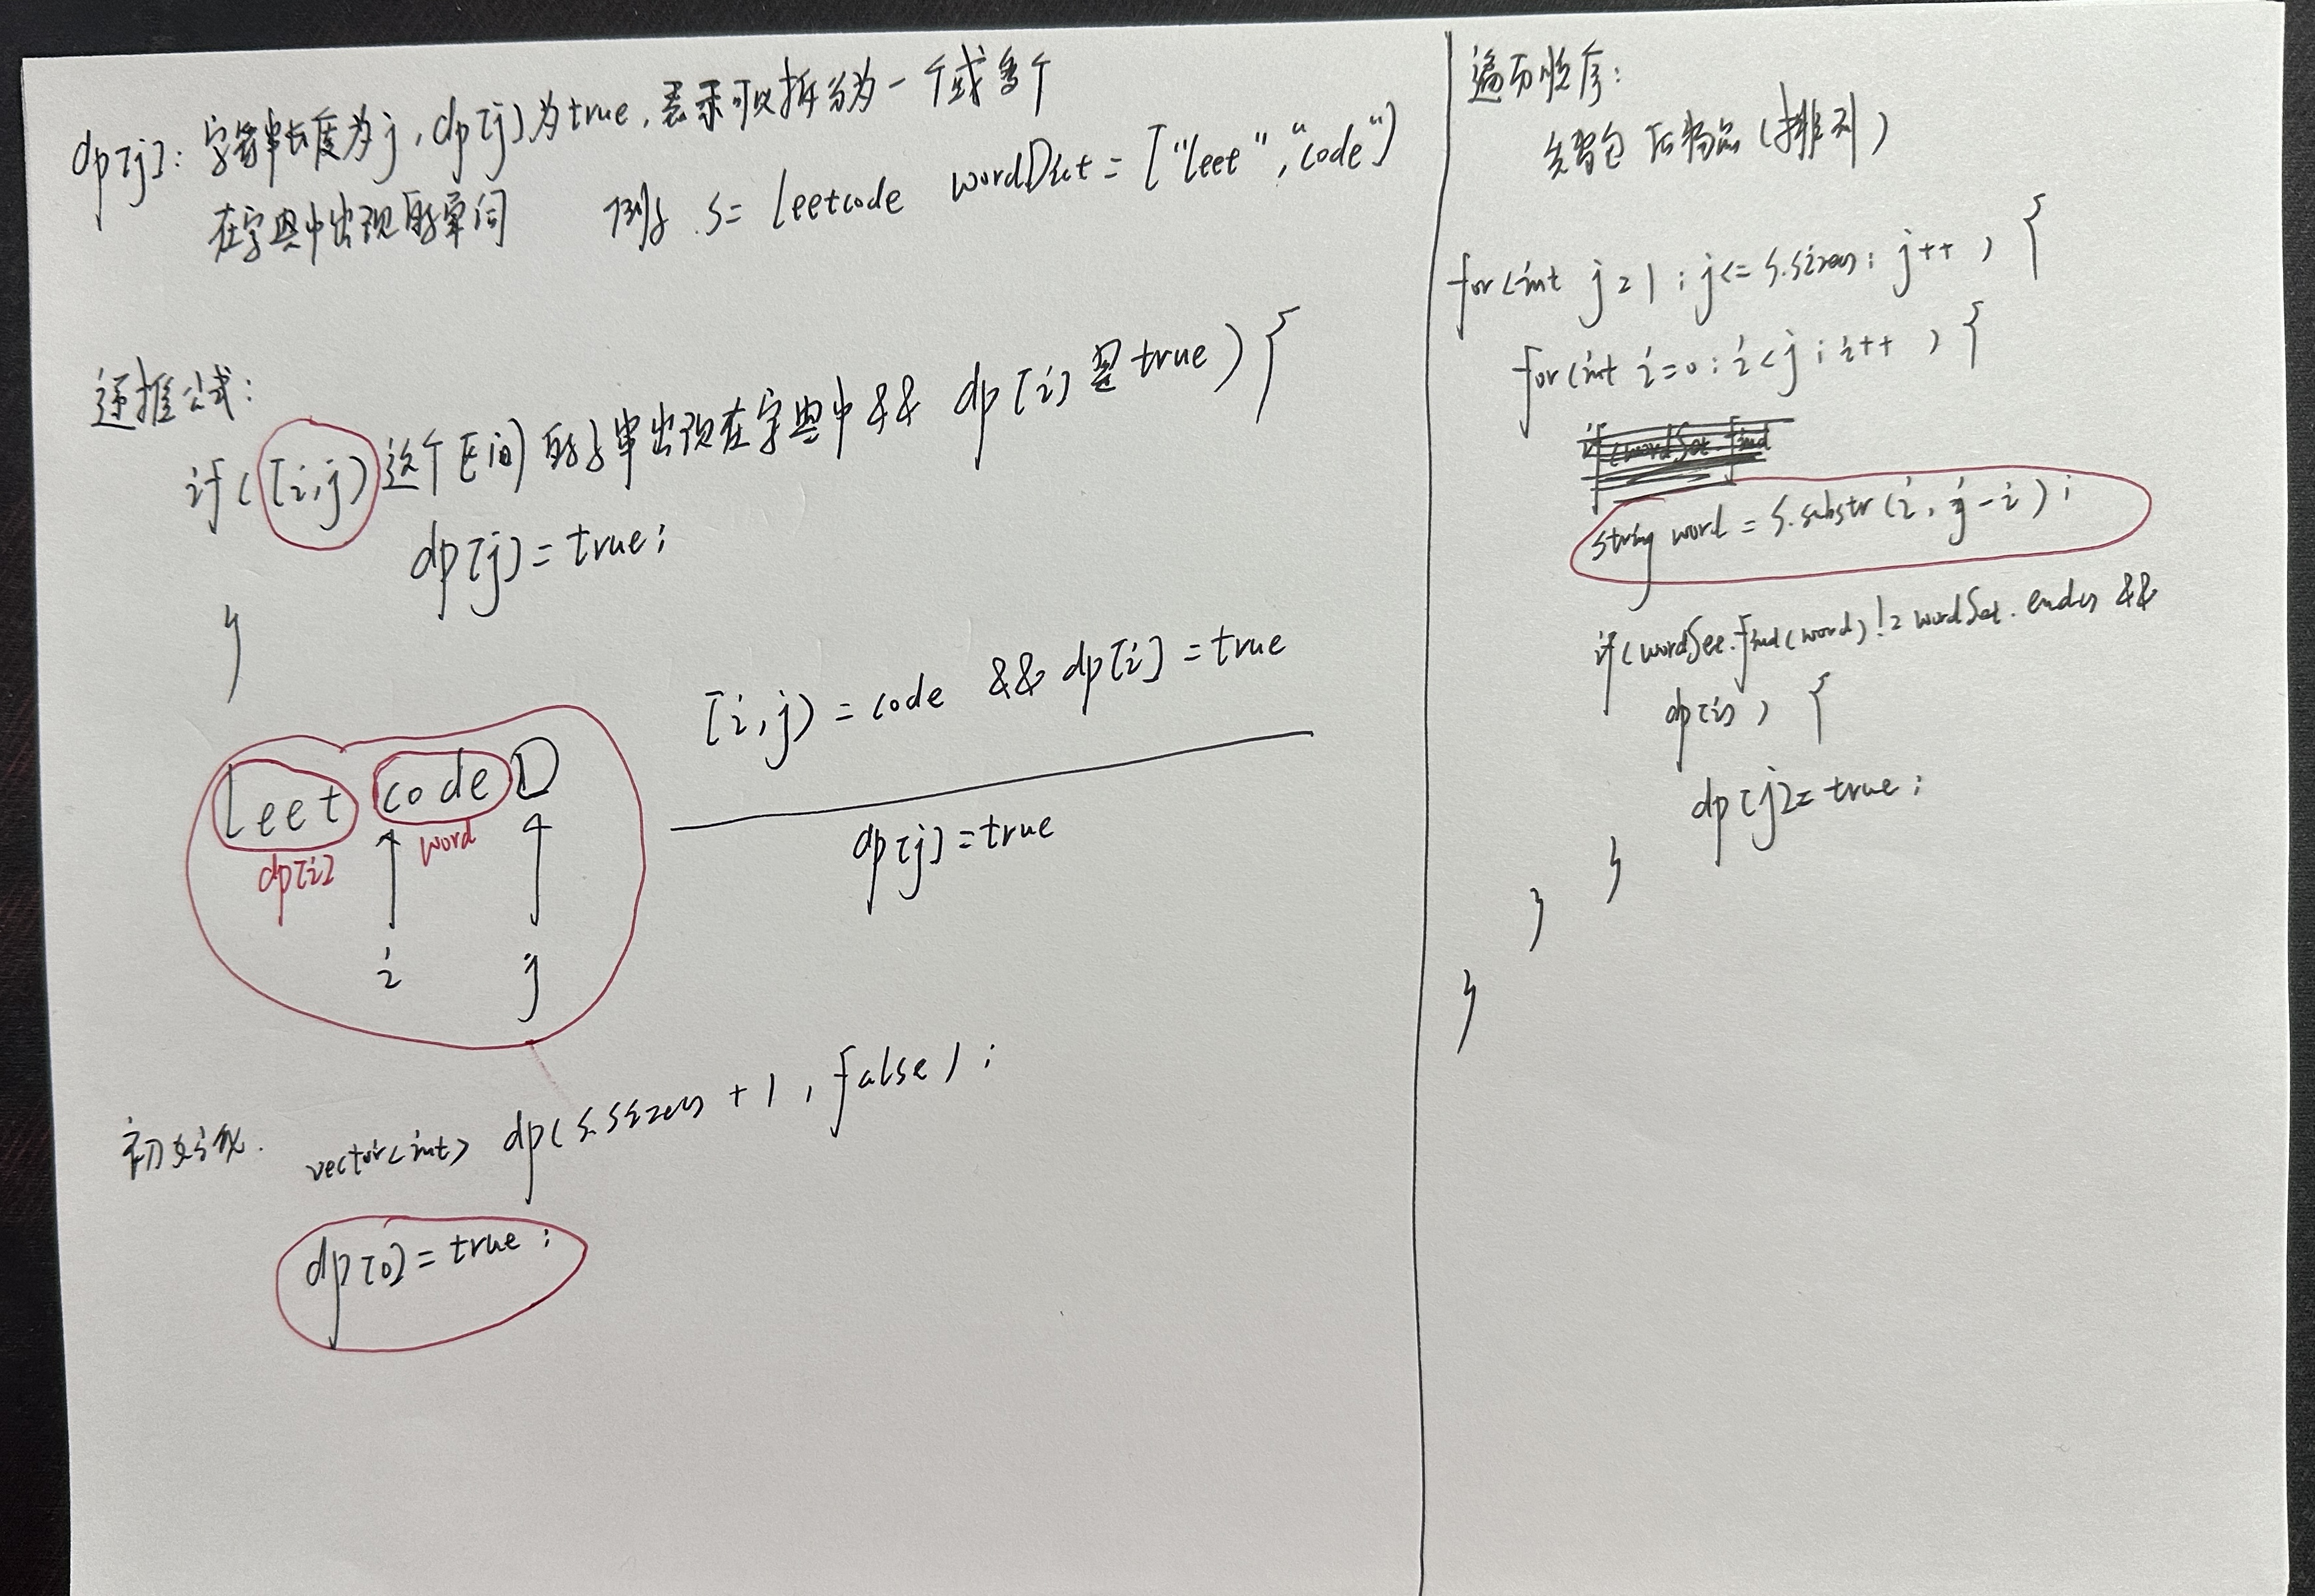 dp[j]: 字符串长度为j, dp[j]为true, 表示可以拆分为一个或多个
在字典中出现的单词 例子 s= leetcode wordDict = ["leet","code"]
递推公式:
if([i,j)这个区间的子串出现在字典中 && dp[i]是true){
dp[j]=true;
}
[i,j)=code && dp[i]=true
dp[j]=true
leet code
dp[i] word
i j
初始化. vector<int> dp(s.size()+1, false);
dp[0]=true;
遍历顺序:
先背包 后物品(排列)
for(int j=1; j<=s.size(); j++){
for(int i=0; i<j; i++){
if(wordSet.find
string word = s.substr(i, j-i);
if(wordSet.find(word)!=wordSet.end() &&
dp[i]){
dp[j]=true;
}
}
}